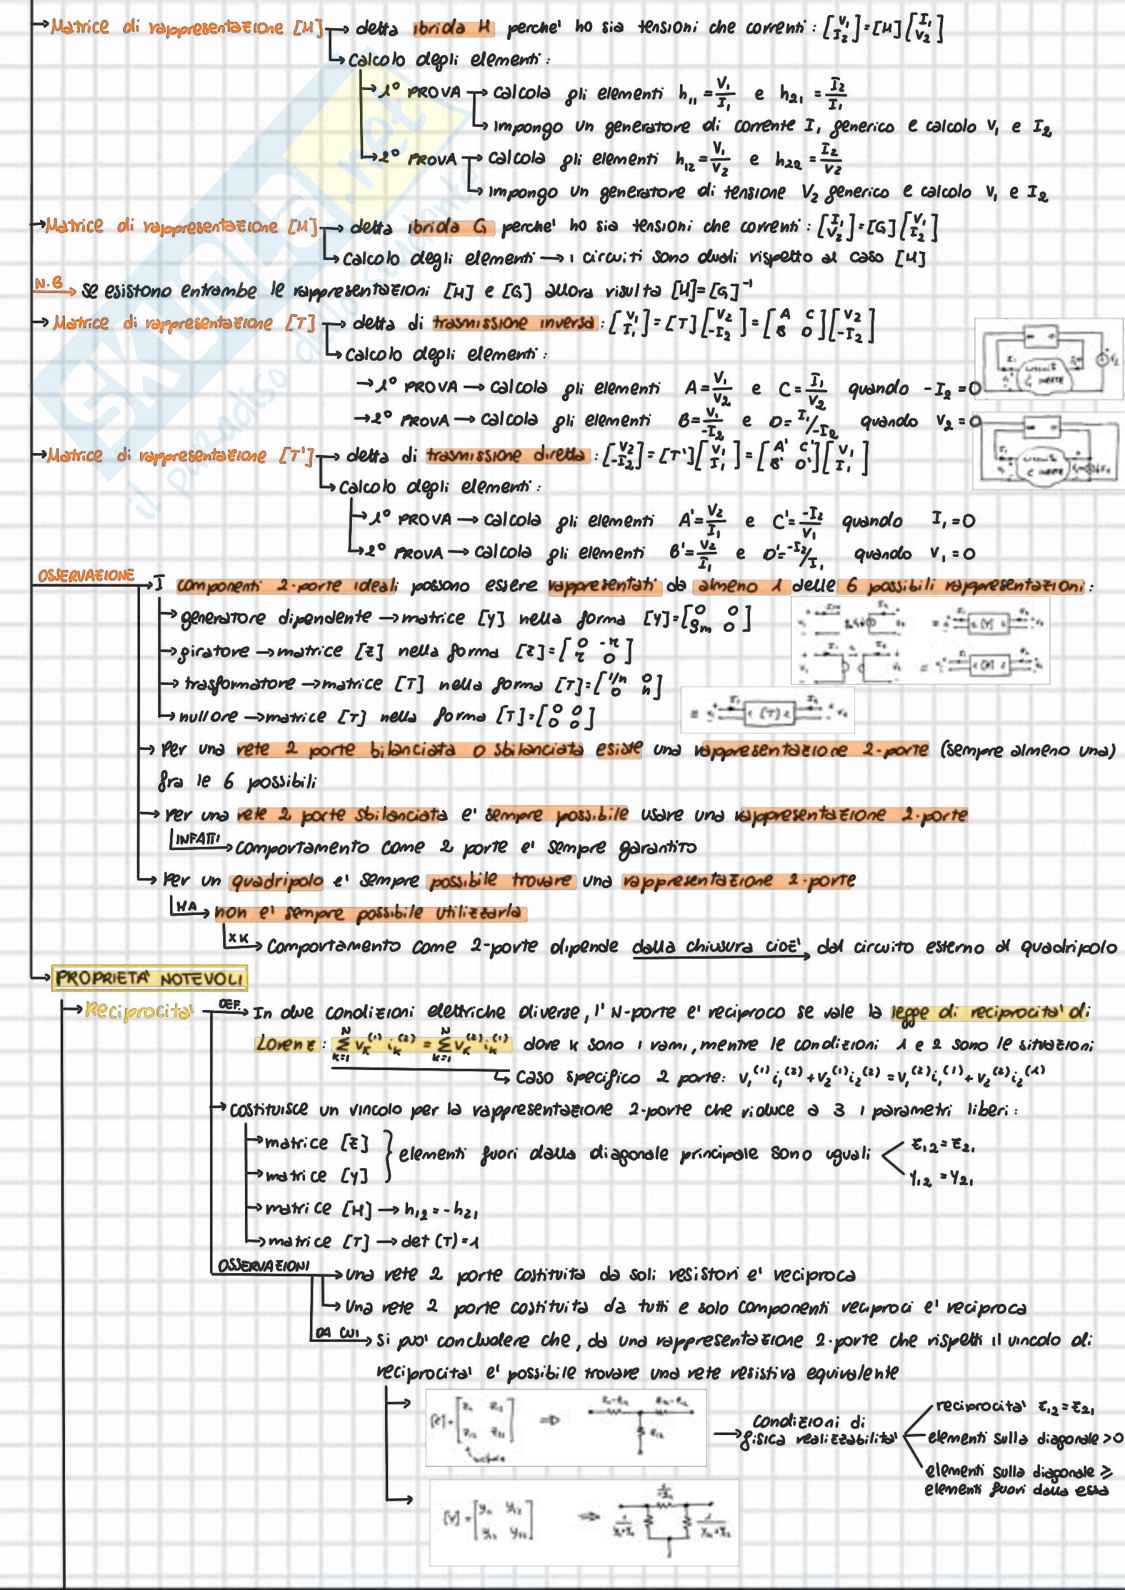 Matrice di rappresentazione [H] → detta ibrida H perche' ho sia tensioni che correnti : [V₁ I₂] = [H] [I₁ V₂]
Calcolo degli elementi :
1° PROVA → calcola gli elementi h₁₁ = V₁/I₁ e h₂₁ = I₂/I₁
impongo un generatore di corrente I₁ generico e calcolo V₁ e I₂
2° PROVA → calcola gli elementi h₁₂ = V₁/V₂ e h₂₂ = I₂/V₂
impongo un generatore di tensione V₂ generico e calcolo V₁ e I₂
Matrice di rappresentazione [H] → detta ibrida G perche' ho sia tensioni che correnti : [I₁ V₂] = [G] [V₁ I₂]
Calcolo degli elementi → i circuiti sono duali rispetto al caso [H]
N.B → se esistono entrambe le rappresentazioni [H] e [G] allora risulta [H]=[G]⁻¹
Matrice di rappresentazione [T] → detta di trasmissione inversa : [V₁ I₁] = [T] [V₂ -I₂] = [A C B D] [V₂ -I₂]
Calcolo degli elementi :
→ 1° PROVA → calcola gli elementi A = V₁/V₂ e C = I₁/V₂ quando -I₂ = 0
→ 2° PROVA → calcola gli elementi B = V₁/-I₂ e D = I₁/-I₂ quando V₂ = 0
Matrice di rappresentazione [T'] → detta di trasmissione diretta : [V₂ -I₂] = [T'] [V₁ I₁] = [A' C' B' D'] [V₁ I₁]
Calcolo degli elementi :
1° PROVA → calcola gli elementi A' = V₂/I₁ e C' = -I₂/V₁ quando I₁ = 0
2° PROVA → calcola gli elementi B' = V₂/I₁ e D' = -I₂/I₁ quando V₁ = 0
OSSERVAZIONE → I componenti 2-porte ideali possono essere rappresentati da almeno 1 delle 6 possibili rappresentazioni :
generatore dipendente → matrice [y] nella forma [y] = [0 0 gm 0]
giratore → matrice [z] nella forma [z] = [0 -r r 0]
trasformatore → matrice [T] nella forma [T] = [1/n 0 0 n]
nullore → matrice [T] nella forma [T] = [0 0 0 0]
Per una rete 2 porte bilanciata o sbilanciata esiste una rappresentazione 2-porte (sempre almeno una)
fra le 6 possibili
Per una rete 2 porte sbilanciata e' sempre possibile usare una rappresentazione 2-porte
INFATTI → comportamento come 2 porte e' sempre garantito
Per un quadripolo e' sempre possibile trovare una rappresentazione 2-porte
MA → non e' sempre possibile utilizzarla
XK → comportamento come 2-porte dipende dalla chiusura cioE' dal circuito esterno al quadripolo
PROPRIETA' NOTEVOLI
Reciprocita' DEF. → In due condizioni elettriche diverse, l' N-porte e' reciproco se vale la legge di reciprocita' di
Lorenz : Σ_{k=1}^{N} v_k⁽¹⁾ i_k⁽²⁾ = Σ_{k=1}^{N} v_k⁽²⁾ i_k⁽¹⁾ dove k sono i rami, mentre le condizioni 1 e 2 sono le situazioni
Caso specifico 2 porte: v₁⁽¹⁾ i₁⁽²⁾ + v₂⁽¹⁾ i₂⁽²⁾ = v₁⁽²⁾ i₁⁽¹⁾ + v₂⁽²⁾ i₂⁽¹⁾
costituisce un vincolo per la rappresentazione 2-porte che riduce a 3 i parametri liberi :
matrice [z]
matrice [y]
elementi fuori dalla diagonale principale sono uguali
z₁₂ = z₂₁
y₁₂ = y₂₁
matrice [H] → h₁₂ = -h₂₁
matrice [T] → det (T) = 1
OSSERVAZIONI → una rete 2 porte costituita da soli resistori e' reciproca
Una rete 2 porte costituita da tutti e solo componenti reciproci e' reciproca
DA CUI → si puo' concludere che, da una rappresentazione 2-porte che rispetti il vincolo di
reciprocita' e' possibile trovare una rete resistiva equivalente
condizioni di
fisica realizzabilita'
reciprocita' z₁₂ = z₂₁
elementi sulla diagonale > 0
elementi sulla diagonale ≥
elementi fuori dalla essa